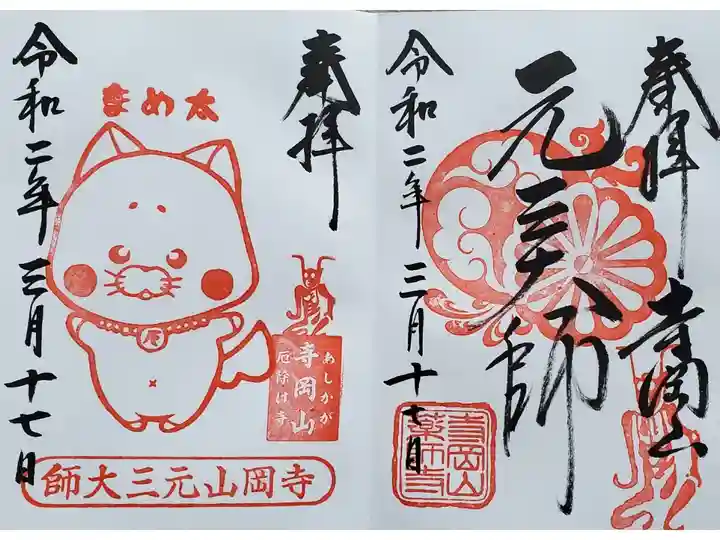 奉拝
寺岡山
元三大師
令和二年三月十七日
寺岡山
薬師寺
奉拝
まめ太
令和二年三月十七日
あしかが
寺岡山
厄除け寺
寺岡山元三大師